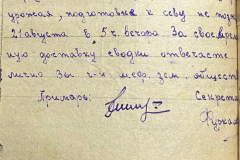 урожая, подготовки к севу не позн
21 августа в 5 ч. вечера. За своевремен
ную доставку сводки отвечаете
лично Вы и-и мед. зем. обществ
Примарь:
Секрета